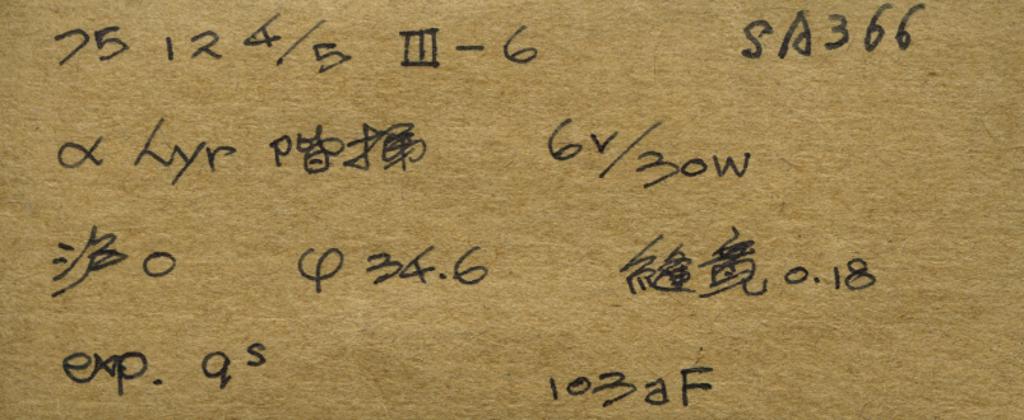 75 12 4/5 III-6 SA366
α Lyr 階梯 6V/30W
滤 0 φ 34.6 縫寬 0.18
exp. 9s
103aF